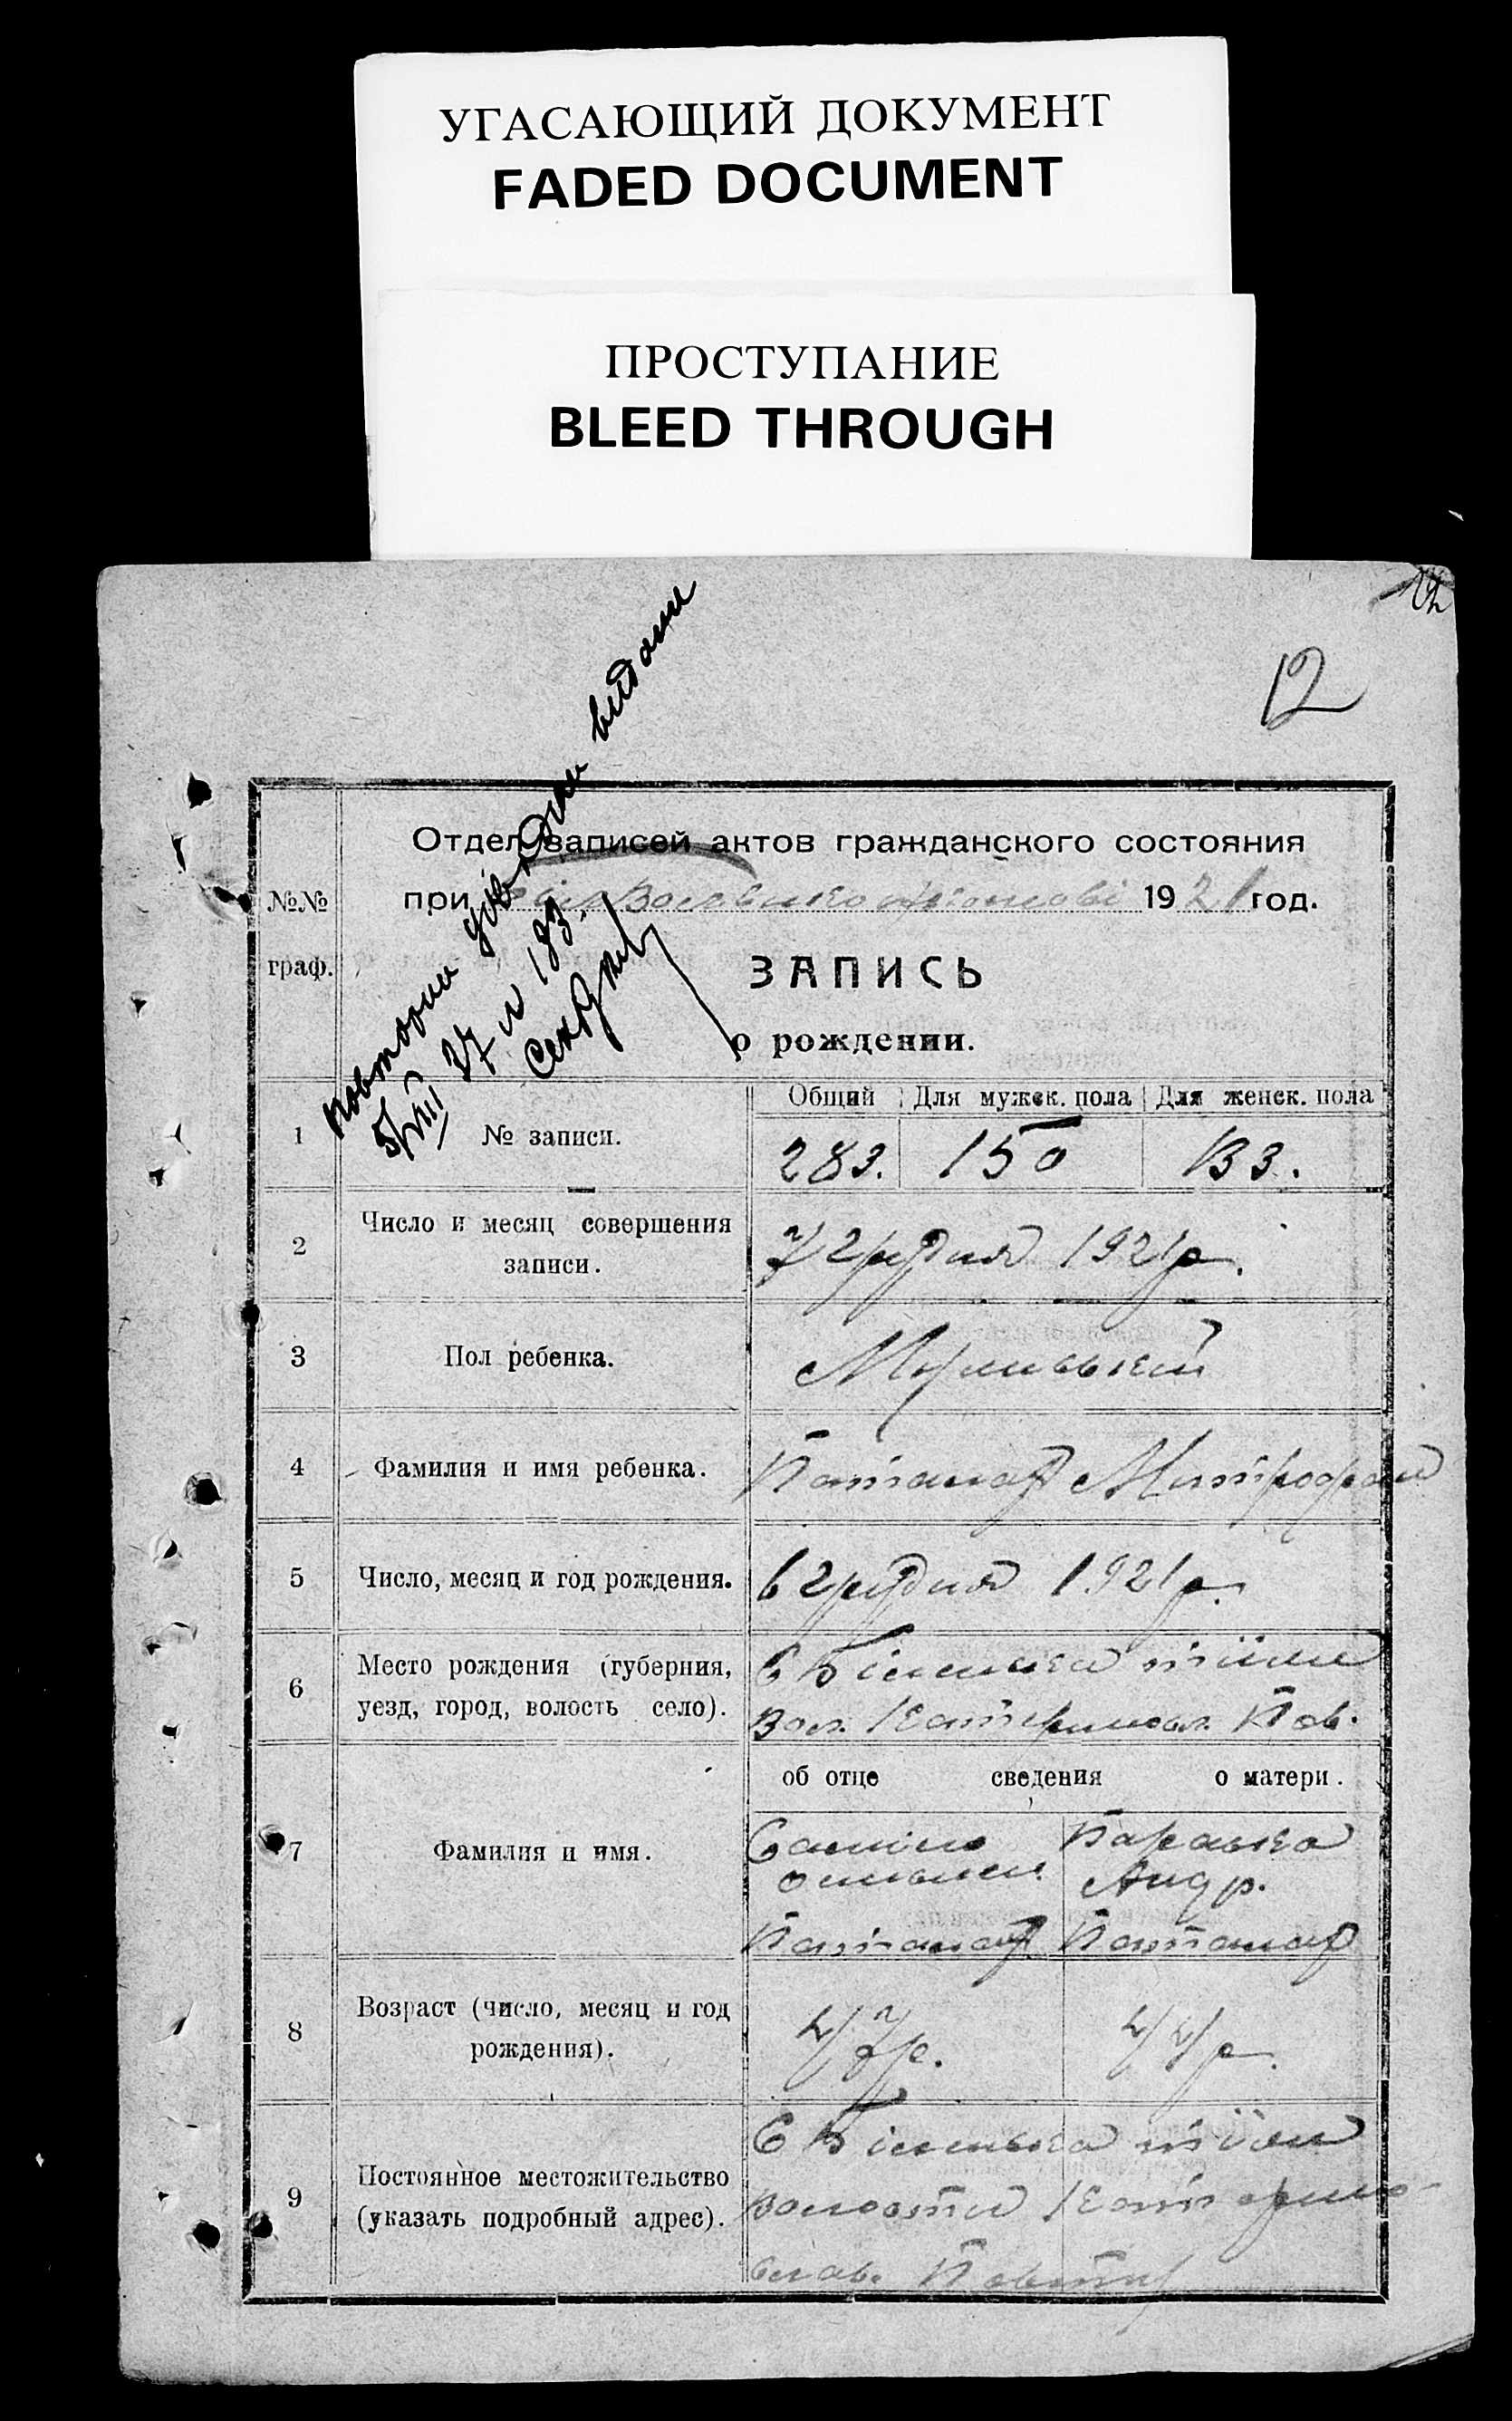 УГАСАЮЩИЙ ДОКУМЕНТ
FADED DOCUMENT
ПРОСТУПАНИЕ
BLEED THROUGH
12
Повторни видани
5/VIII 37 № 183.
Отдел записей актов гражданского состояния
при 1921 год.
№№ граф.
ЗАПИСЬ
о рождении.
Общий Для мужск. пола Для женск. пола
1 № записи. 283. 150 133.
2 Число и месяц совершения
записи. 7 грудня 1921 р.
3 Пол ребенка. Мужський
4 Фамилия и имя ребенка. Паталах Митрофан
5 Число, месяц и год рождения. 6 грудня 1921 р.
6 Место рождения (губерния,
уезд, город, волость село).
Вол. Катериносл. Пов.
об отце сведения о матери.
7 Фамилия и имя.
Параска
Андр.
Паталах Паталах
8 Возраст (число, месяц и год
рождения). 47 р. 44 р.
9 Постоянное местожительство
(указать подробный адрес).
Волости Катерино-
слав. Повіту